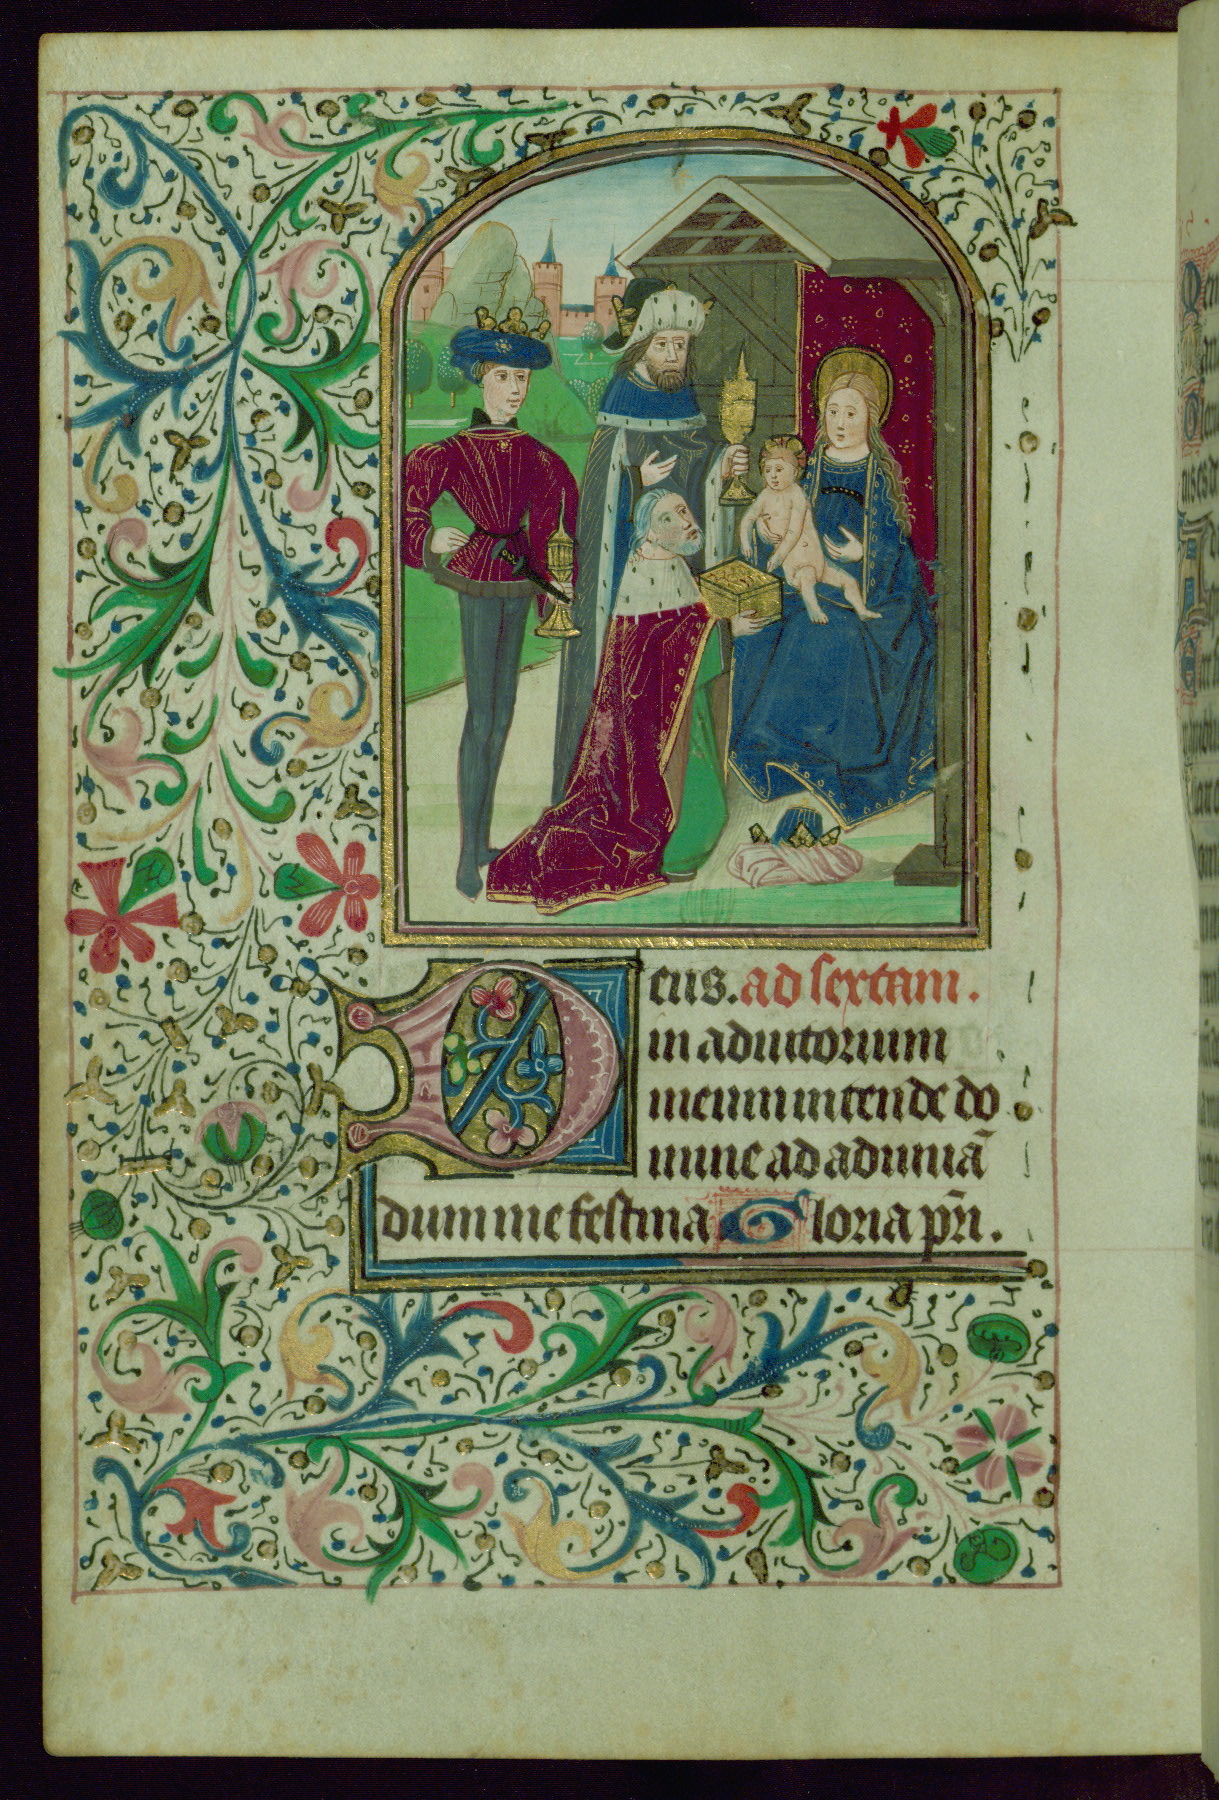 Deus. ad sextam.
in adiutorium
meum intende do
mine ad adiuuā
dum me festina Gloria pr̄i.